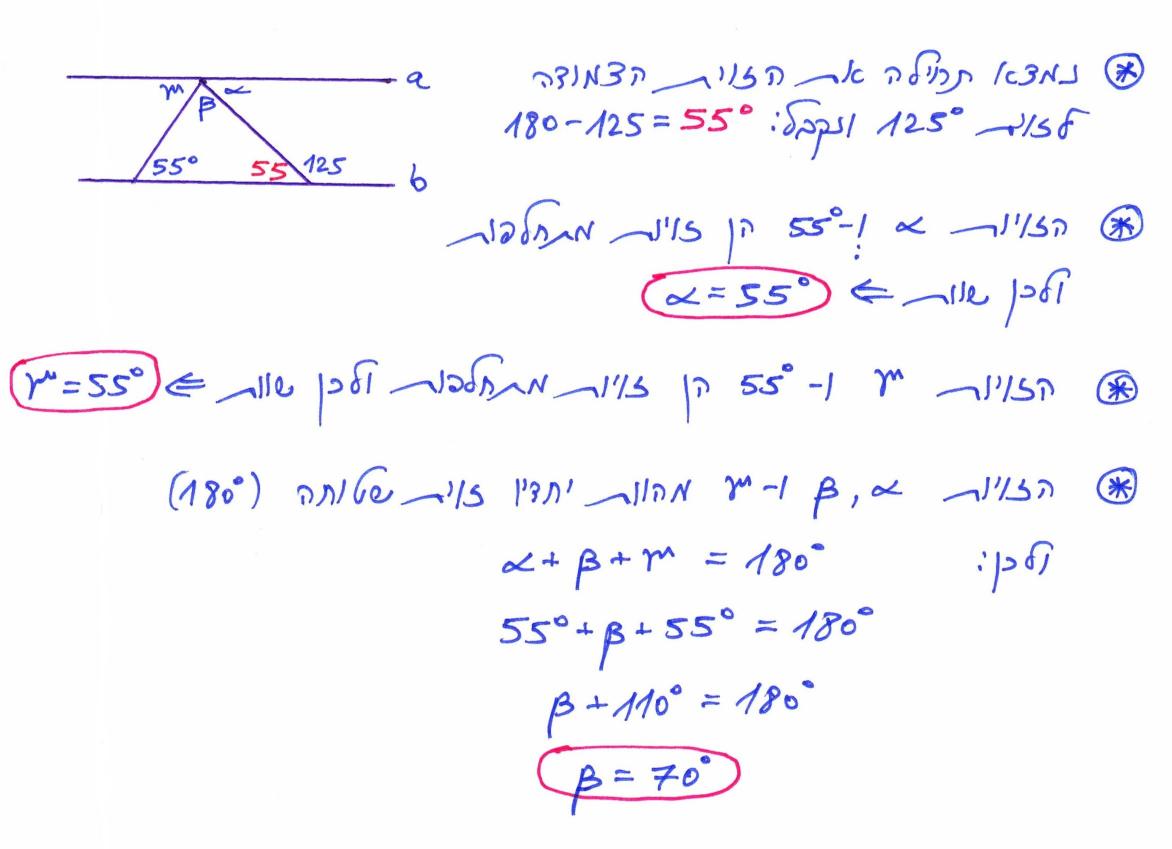 a
ɣ β α
55° 55 125
b
⊛ נמצא תחילה את הזוית הצמודה
לזוית 125° ונקבל: 180-125=55°
⊛ הזוית α ו-55° הן זוית מתחלפות
ולכן שוות ⇐ α=55°
⊛ הזוית ɣ ו-55° הן זוית מתחלפות ולכן שוות ⇐ ɣ=55°
⊛ הזוית α, β ו-ɣ מהוות יחדיו זוית שטוחה (180°)
ולכן: α+β+ɣ = 180°
55°+β+55° = 180°
β+110° = 180°
β = 70°